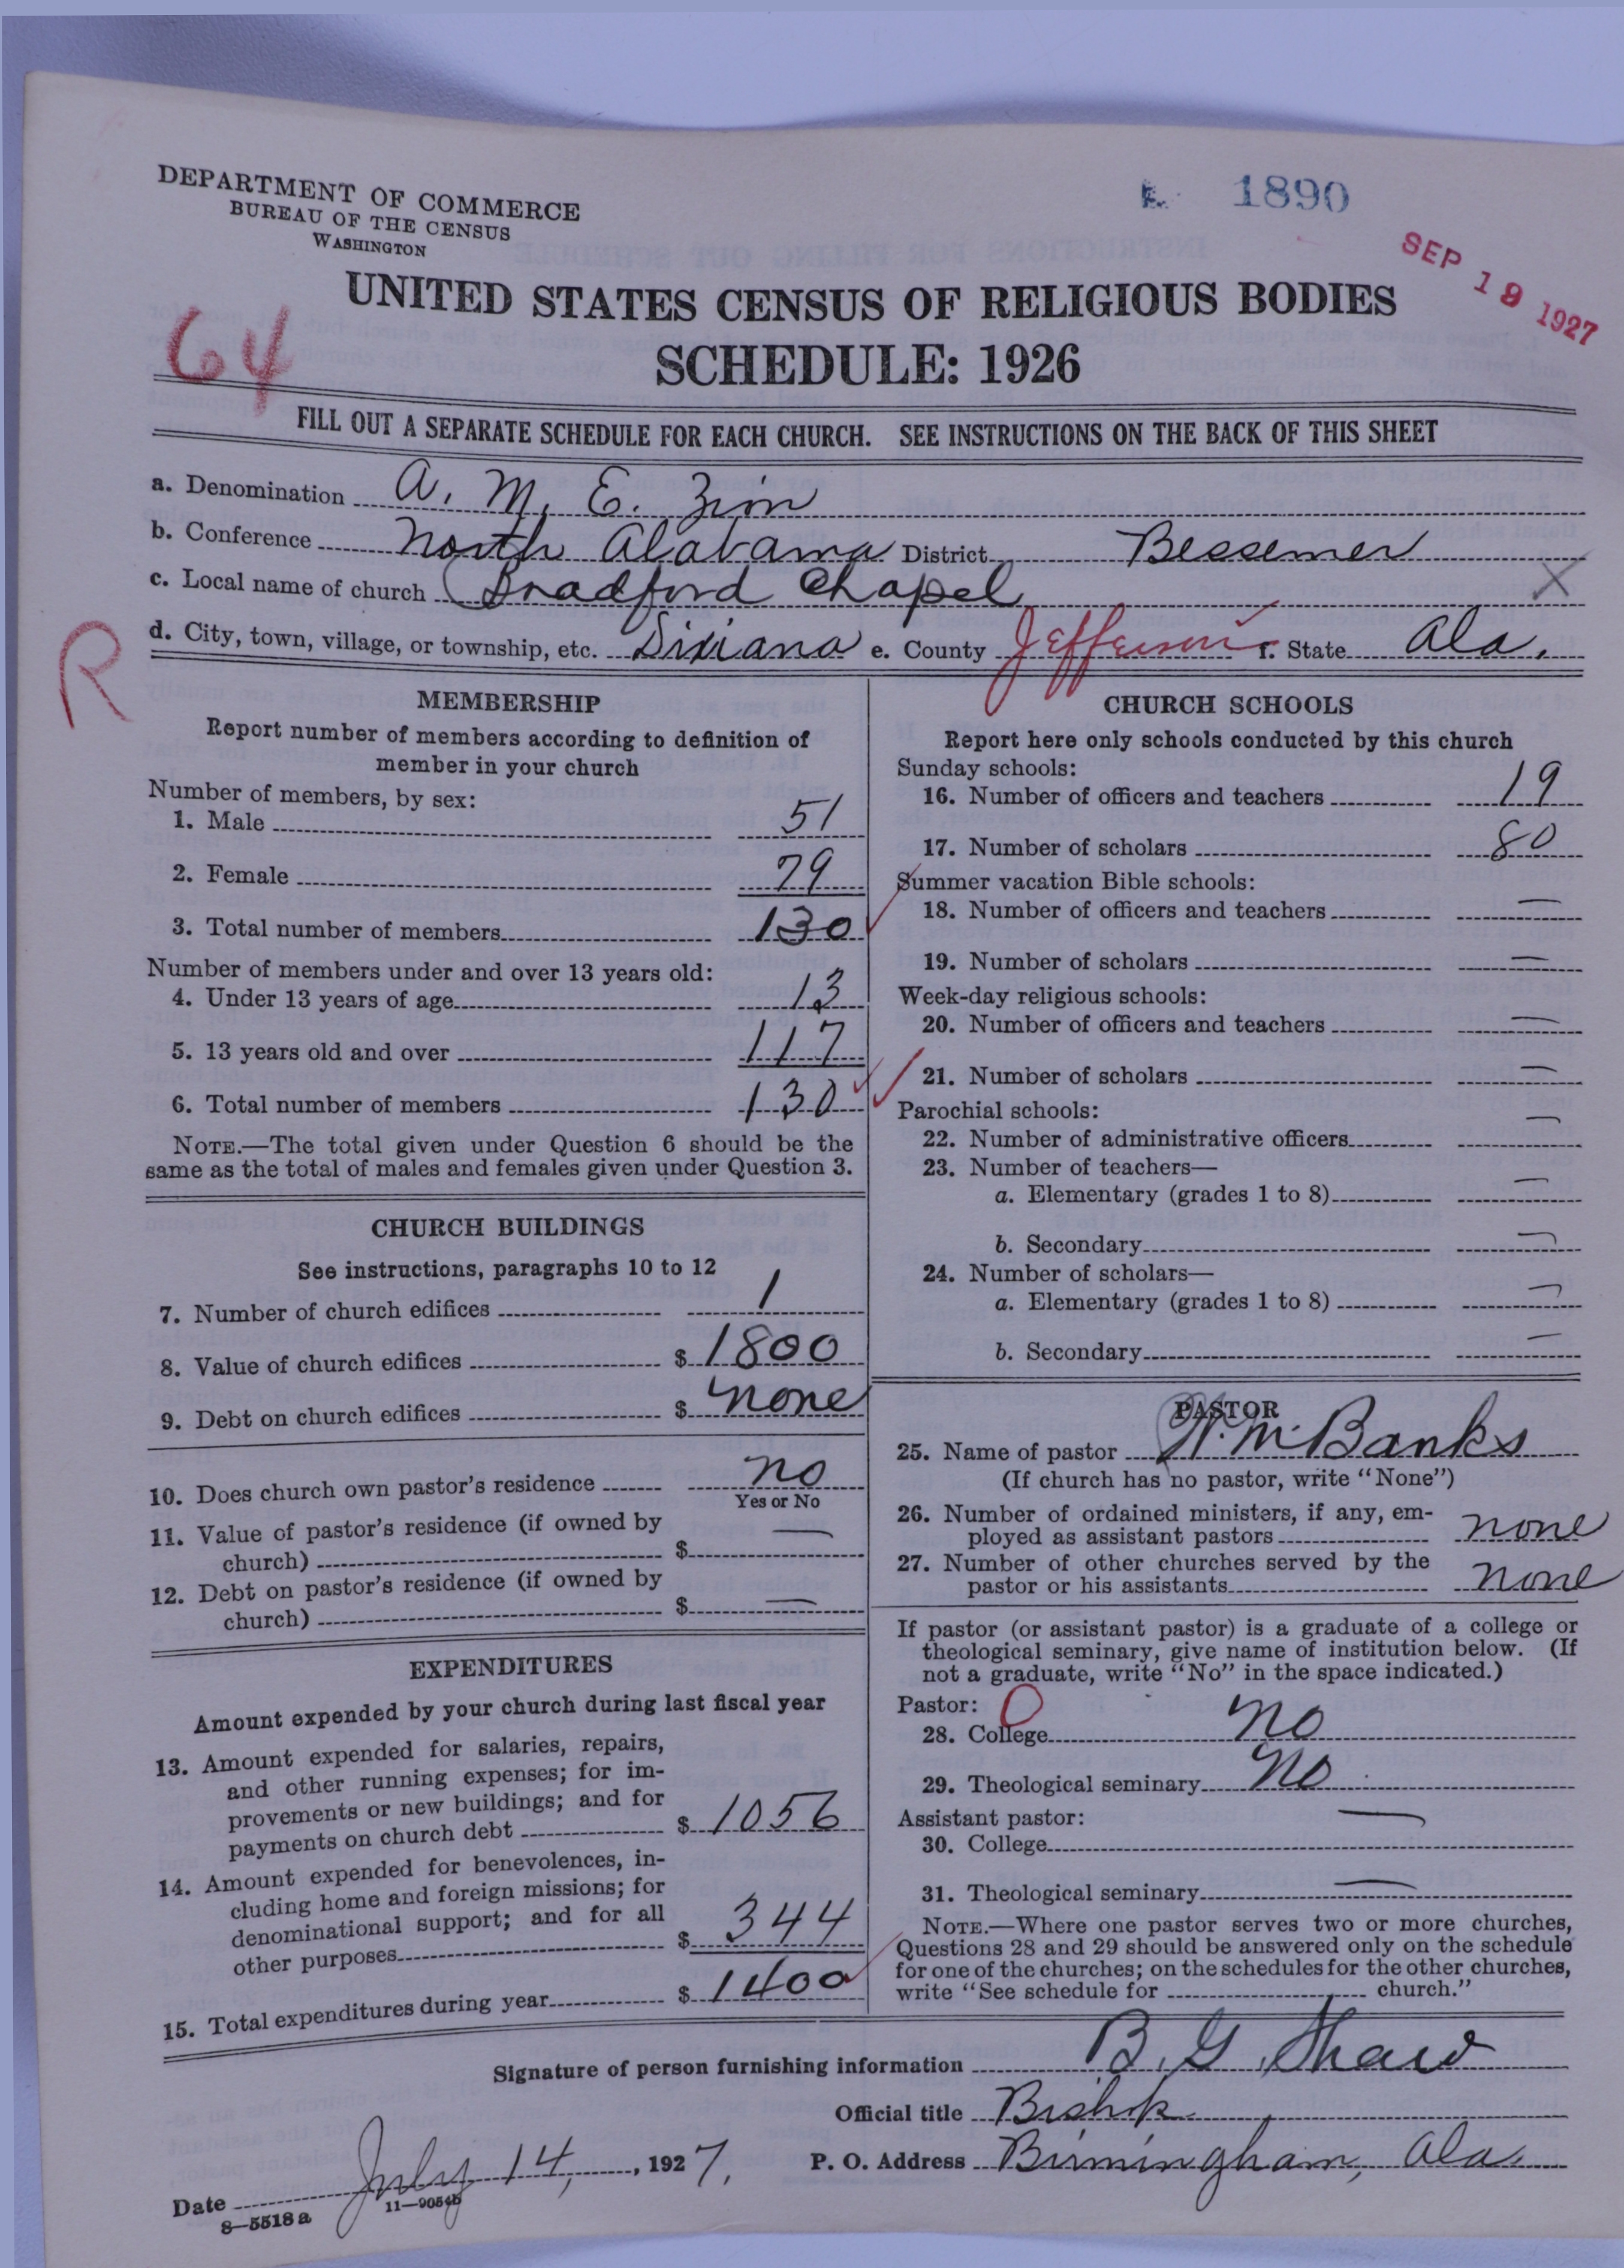 DEPARTMENT OF COMMERCE
BUREAU OF THE CENSUS
WASHINGTON
1890
SEP 19 1927
UNITED STATES CENSUS OF RELIGIOUS BODIES
SCHEDULE: 1926
64
FILL OUT A SEPARATE SCHEDULE FOR EACH CHURCH. SEE INSTRUCTIONS ON THE BACK OF THIS SHEET
a. Denomination A. M. E. Zion
b. Conference North Alabama District Bessemer
c. Local name of church Bradford Chapel X
d. City, town, village, or township, etc. Dixiana e. County Jefferson f. State Ala.
R
MEMBERSHIP
Report number of members according to definition of
member in your church
Number of members, by sex:
1. Male 51
2. Female 79
3. Total number of members 130
Number of members under and over 13 years old:
4. Under 13 years of age 13
5. 13 years old and over 117
6. Total number of members 130
NOTE.—The total given under Question 6 should be the
same as the total of males and females given under Question 3.
CHURCH BUILDINGS
See instructions, paragraphs 10 to 12
7. Number of church edifices 1
8. Value of church edifices $ 1800
9. Debt on church edifices $ none
10. Does church own pastor's residence no
Yes or No
11. Value of pastor's residence (if owned by
church) $ —
12. Debt on pastor's residence (if owned by
church) $ —
EXPENDITURES
Amount expended by your church during last fiscal year
13. Amount expended for salaries, repairs,
and other running expenses; for im-
provements or new buildings; and for
payments on church debt $ 1056
14. Amount expended for benevolences, in-
cluding home and foreign missions; for
denominational support; and for all
other purposes $ 344
15. Total expenditures during year $ 1400
CHURCH SCHOOLS
Report here only schools conducted by this church
Sunday schools:
16. Number of officers and teachers 19
17. Number of scholars 80
Summer vacation Bible schools:
18. Number of officers and teachers —
19. Number of scholars —
Week-day religious schools:
20. Number of officers and teachers —
21. Number of scholars —
Parochial schools:
22. Number of administrative officers —
23. Number of teachers—
a. Elementary (grades 1 to 8) —
b. Secondary —
24. Number of scholars—
a. Elementary (grades 1 to 8) —
b. Secondary —
PASTOR
25. Name of pastor W. M. Banks
(If church has no pastor, write "None")
26. Number of ordained ministers, if any, em-
ployed as assistant pastors none
27. Number of other churches served by the
pastor or his assistants none
If pastor (or assistant pastor) is a graduate of a college or
theological seminary, give name of institution below. (If
not a graduate, write "No" in the space indicated.)
Pastor: 0
28. College no
29. Theological seminary no
Assistant pastor:
30. College —
31. Theological seminary —
NOTE.—Where one pastor serves two or more churches,
Questions 28 and 29 should be answered only on the schedule
for one of the churches; on the schedules for the other churches,
write "See schedule for church."
Signature of person furnishing information B. G. Shaw
Official title Bishop
Date July 14, 1927. P. O. Address Birmingham, Ala.
8—5518a 11—9054b